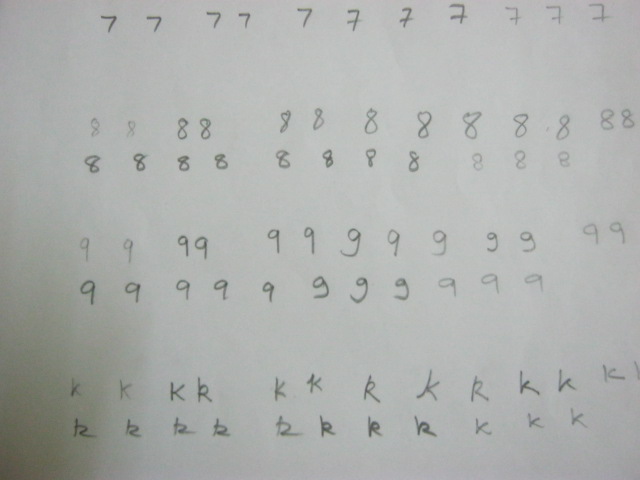 7 7 7 7 7 7 7 7 7 7 7
8 8 8 8 8 8 8 8 8 8 8 8 8
8 8 8 8 8 8 8 8 8 8 8
9 9 9 9 9 9 9 9 9 9 9 9 9
9 9 9 9 9 9 9 9 9 9 9
k k k k k k k k k k k k
k k k k k k k k k k k